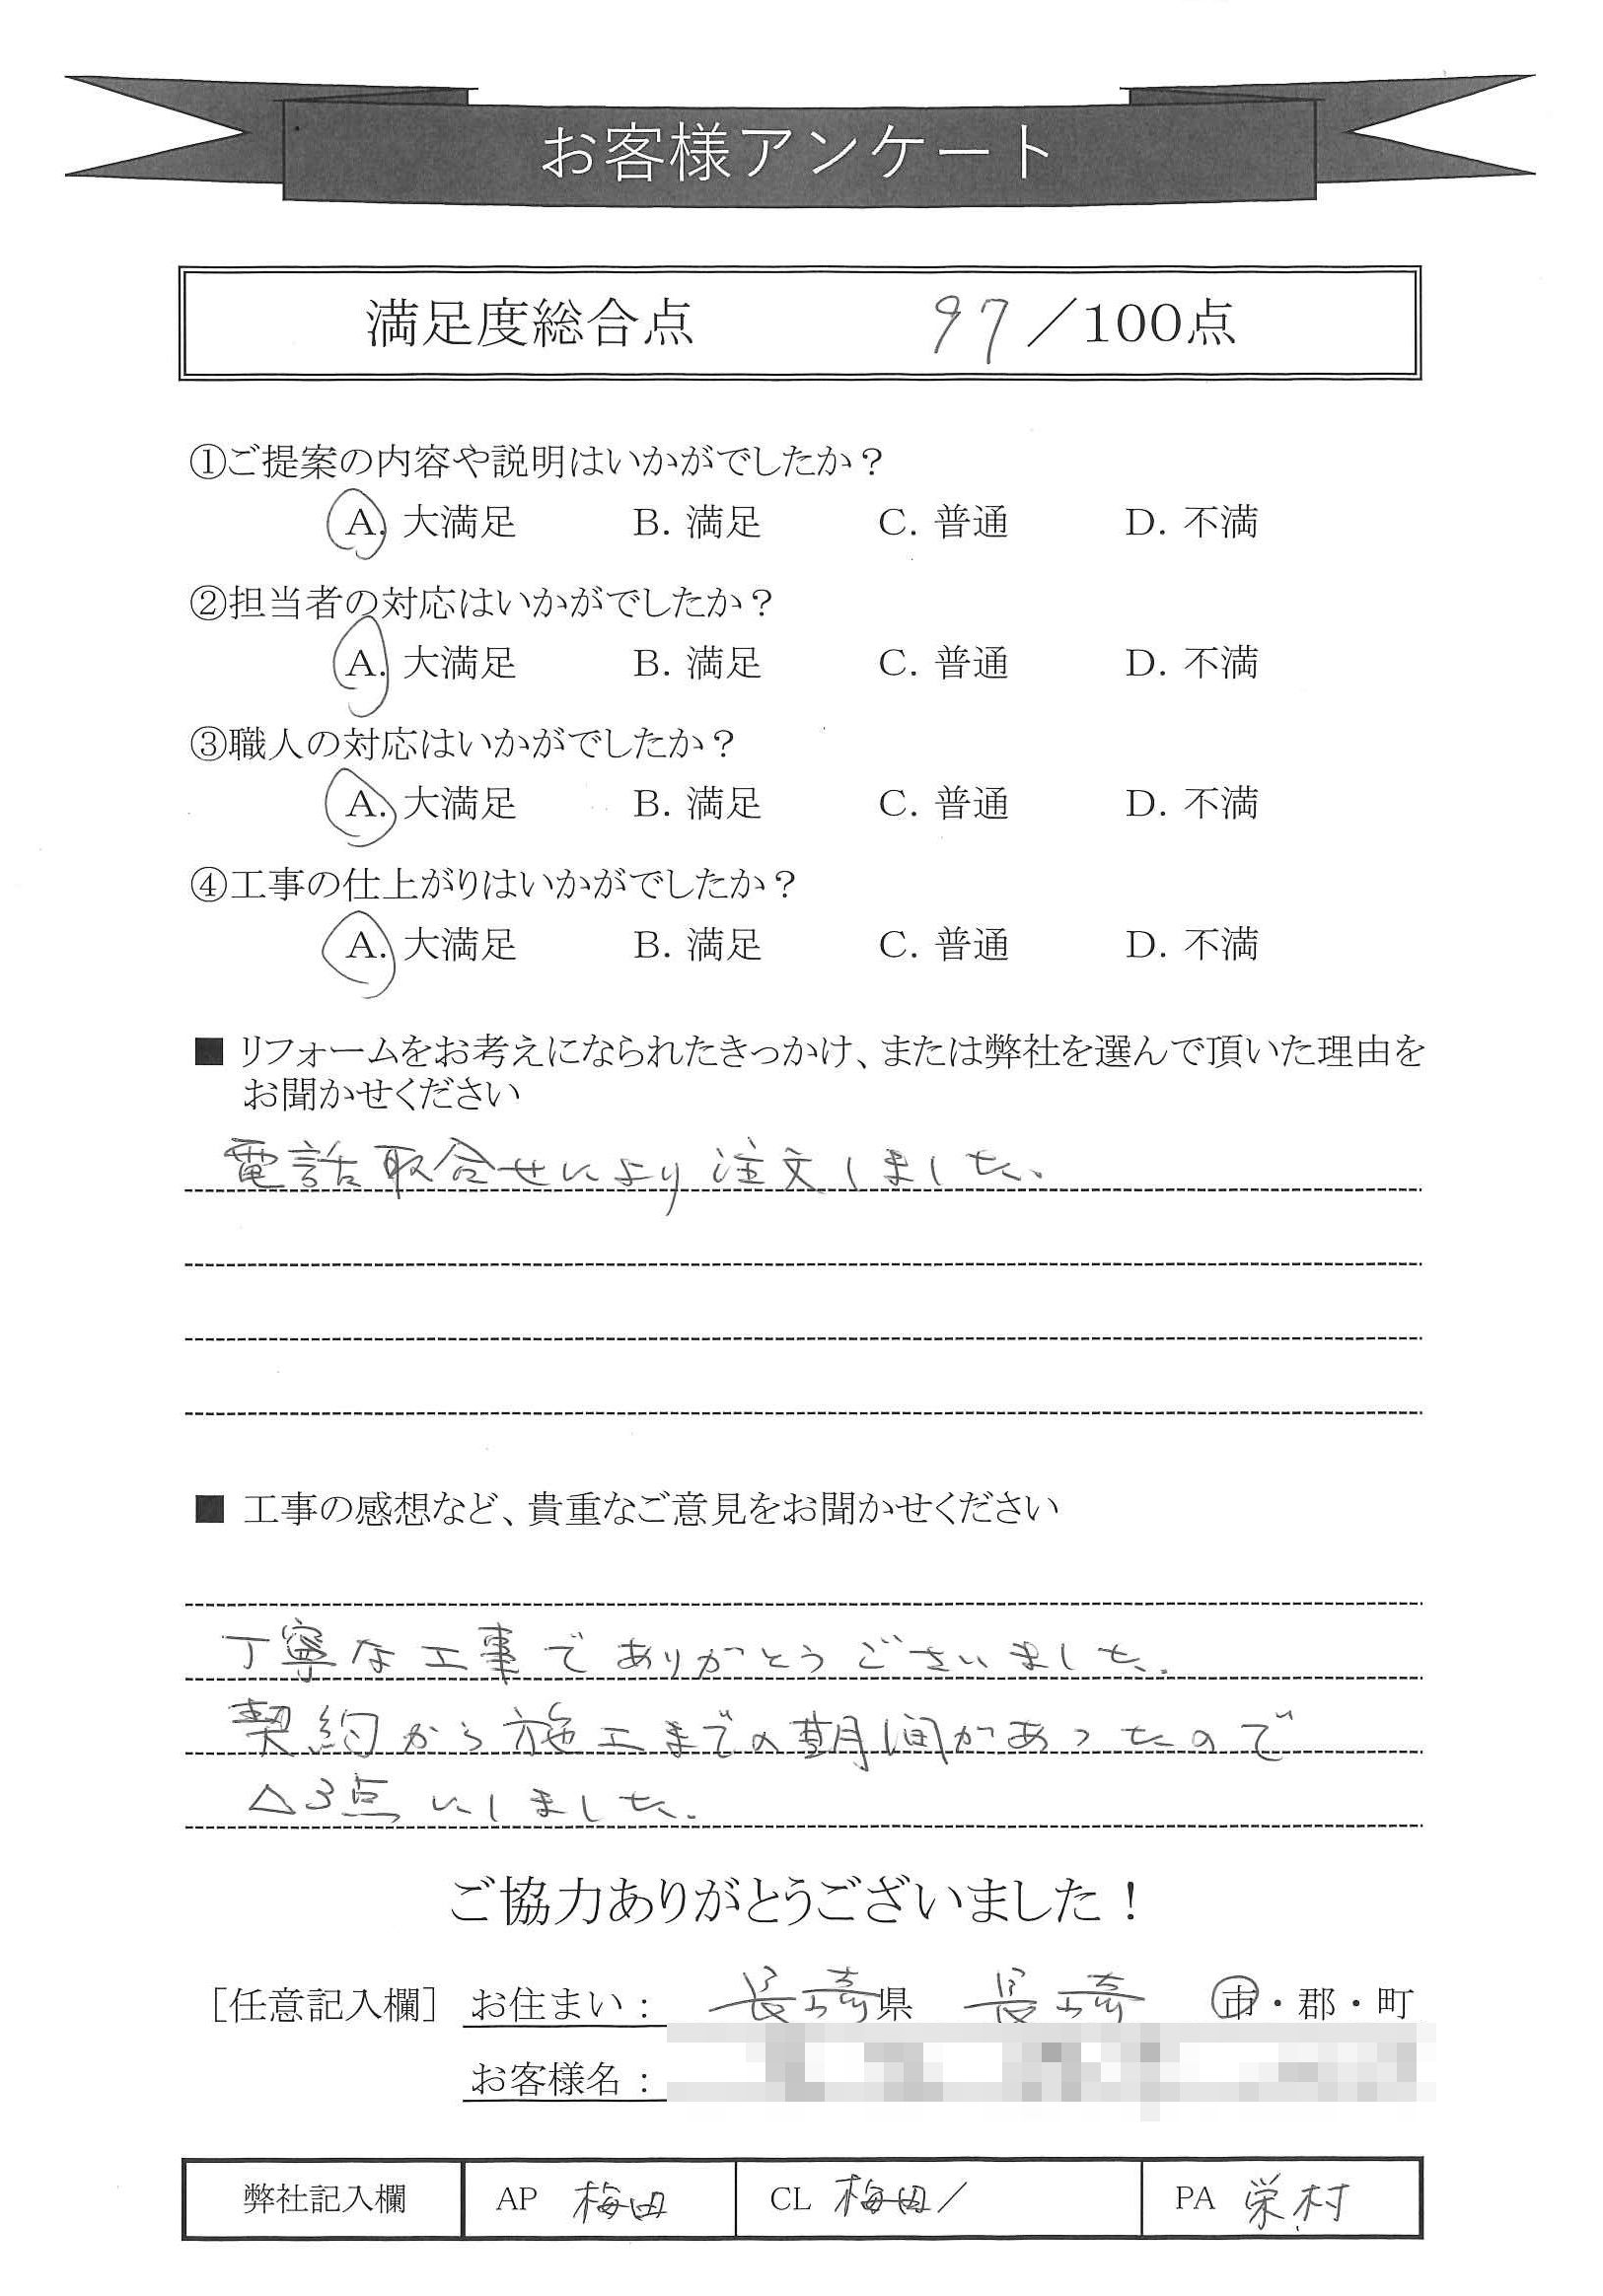 お客様アンケート
満足度総合点 97／100点
①ご提案の内容や説明はいかがでしたか？
A. 大満足 B. 満足 C. 普通 D. 不満
②担当者の対応はいかがでしたか？
A. 大満足 B. 満足 C. 普通 D. 不満
③職人の対応はいかがでしたか？
A. 大満足 B. 満足 C. 普通 D. 不満
④工事の仕上がりはいかがでしたか？
A. 大満足 B. 満足 C. 普通 D. 不満
■ リフォームをお考えになられたきっかけ、または弊社を選んで頂いた理由を
お聞かせください
電話取合せにより注文しました。
■ 工事の感想など、貴重なご意見をお聞かせください
丁寧な工事でありがとうございました。
契約から施工までの期間があったので
△3点にしました。
ご協力ありがとうございました！
［任意記入欄］ お住まい： 長崎県 長崎 市・郡・町
お客様名：
弊社記入欄 AP 梅田 CL 梅田/ PA 栄村